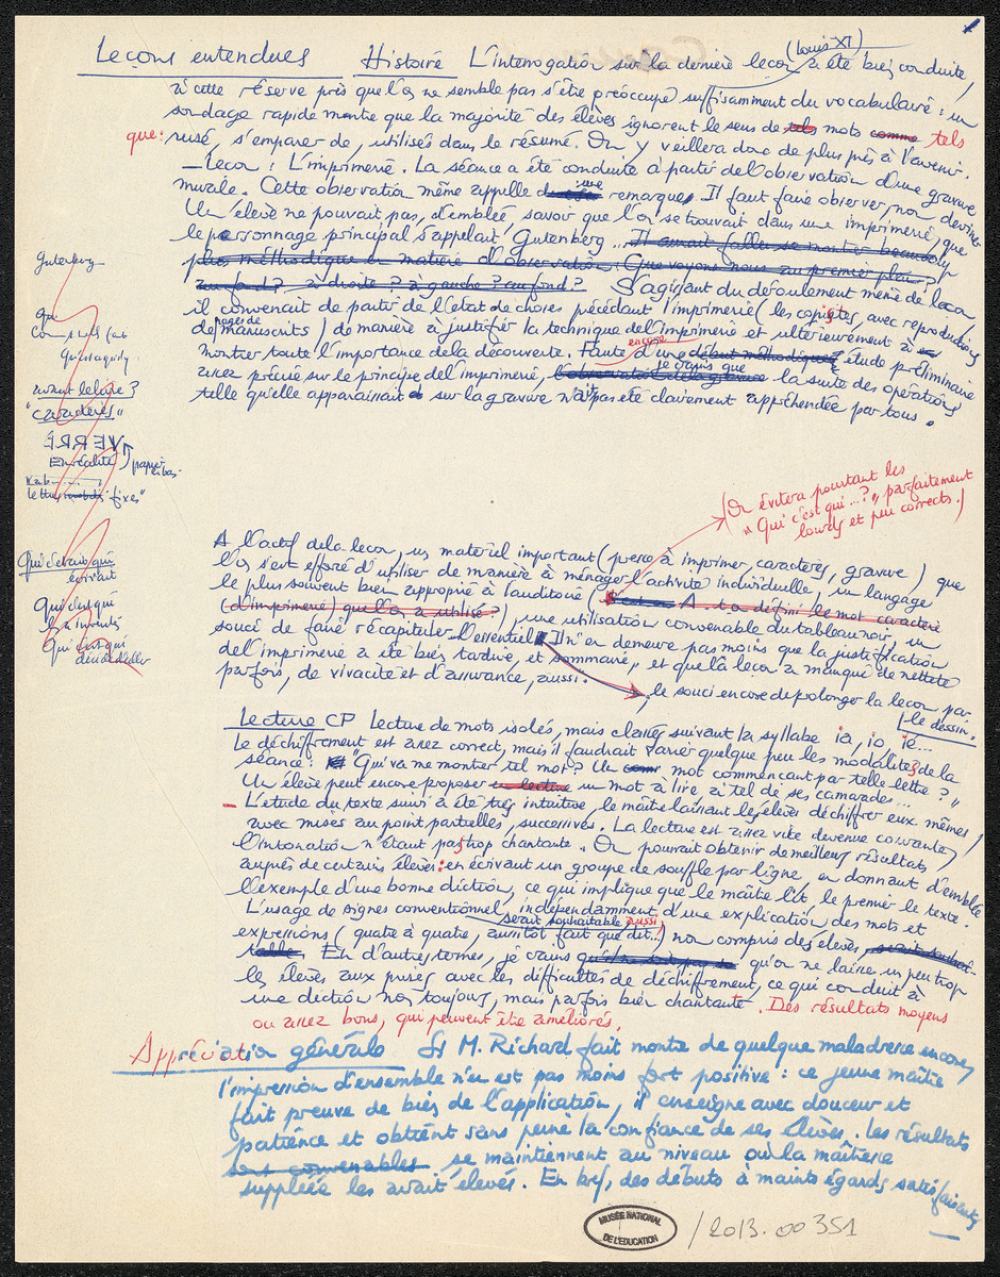 Leçons entendues Histoire L'interrogation sur la dernière leçon (Louis XI) a été bien conduite,
à cette réserve près que l'on ne semble pas s'être préoccupé suffisamment du vocabulaire : un
sondage rapide montre que la majorité des élèves ignorent le sens de tels mots comme tels
que : rusé, s'emparer de, utilisés dans le résumé. On y veillera donc de plus près à l'avenir.
_Leçon : L'imprimerie. La séance a été conduite à partir de l'observation d'une gravure
murale. Cette observation même appelle une remarque. Il faut faire observer, non deviner
Un élève ne pouvait pas, d'emblée, savoir que l'on se trouvait dans une imprimerie, que
le personnage principal s'appelait Gutenberg... Il aurait fallu se montrer beaucoup
plus méthodique en matière d'observation. Que voyons nous au premier plan ?
au fond ? à droite ? à gauche ? au fond ? S'agissant du déroulement même de la leçon,
il convenait de partir de l'état de choses précédant l'imprimerie (les copistes, avec reproductions
de pages de manuscrits) de manière à justifier la technique de l'imprimerie et ultérieurement à en
montrer toute l'importance de la découverte. Faute encore d'une début méthodique étude préliminaire
assez précise sur le principe de l'imprimerie, l'observation de la gravure je crains que la suite des opérations
telle qu'elle apparaissait sur la gravure n'ait pas été clairement appréhendée par tous.
Gutenberg
qui
Qu'y a-t-il
avant lelaire ?
"caractères"
VERRE
En réalité papier
en bas
lettres mobiles "fixes"
(On évitera pourtant les
"Qui c'est qui...?" parfaitement
lourds et peu corrects.)
A l'actif de la leçon, un matériel important (presse à imprimer, caractères, gravure) que
l'on s'est efforcé d'utiliser de manière à ménager l'activité individuelle, un langage
le plus souvent bien approprié à l'auditoire ( A-t-on défini le mot caractère
(d'imprimerie) que l'on a utilisé ?), une utilisation convenable du tableau noir, un
souci de faire récapituler l'essentiel Il n'en demeure pas moins que la justification
de l'imprimerie a été bien tardive, et sommaire, et que la leçon a manqué de netteté
parfois, de vivacité et d'assurance, aussi.
, le souci encore de prolonger la leçon par
le dessin.
Qui c'était qui
écrivait
Qui c'est qui
l'a inventé
Qui c'est qui
Lecture CP Lecture de mots isolés, mais classés suivant la syllabe ia, io, ié...
Le déchiffrement est assez correct, mais il faudrait varier quelque peu les modalités de la
séance : "Qui va me montrer tel mot ? Un mot commençant par telle lettre ?"
Un élève peut encore proposer en lecture un mot à lire à tel de ses camarades...
_ L'étude du texte suivi a été très intuitive, le maître laissant les élèves déchiffrer eux-mêmes,
avec mises au point partielles, successives. La lecture est assez vite devenue courante,
l'intonation n'étant pas trop chantante. On pourrait obtenir de meilleurs résultats
auprès de certains élèves : en écrivant un groupe de souffle par ligne, en donnant d'emblée
l'exemple d'une bonne diction, ce qui implique que le maître lit, le premier le texte.
L'usage de signes conventionnels, indépendamment d'une explication des mots et
expressions (quatre à quatre, aussitôt fait que dit...) non compris des élèves, serait souhaitable, aussi, serait souhai-
table. En d'autres termes, je crains qu'on ne laisse un peu trop
les élèves aux prises avec les difficultés de déchiffrement, ce qui conduit à
une diction non toujours, mais parfois bien chantante. Des résultats moyens
ou assez bons, qui peuvent être améliorés.
Appréciation générale Si M. Richard fait montre de quelque maladresse encore,
l'impression d'ensemble n'en est pas moins fort positive : ce jeune maître
fait preuve de bien de l'application, il enseigne avec douceur et
patience et obtient sans peine la confiance de ses élèves. Les résultats
sont convenables se maintiennent au niveau où la maîtresse
suppléée les avait élevés. En bref, des débuts à maints égards satisfaisants
MUSÉE NATIONAL
DE L'EDUCATION
/2013.00351